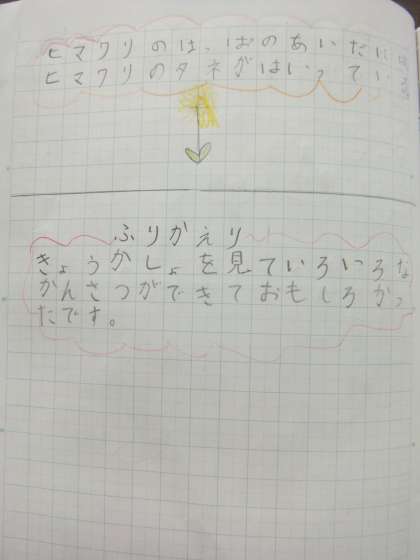 ヒマワリのは、はのあいだに
ヒマワリのタネがはいってい
ふりかえり
きょうかしょを見ていろいろな
かんさつができておもしろかっ
たです。